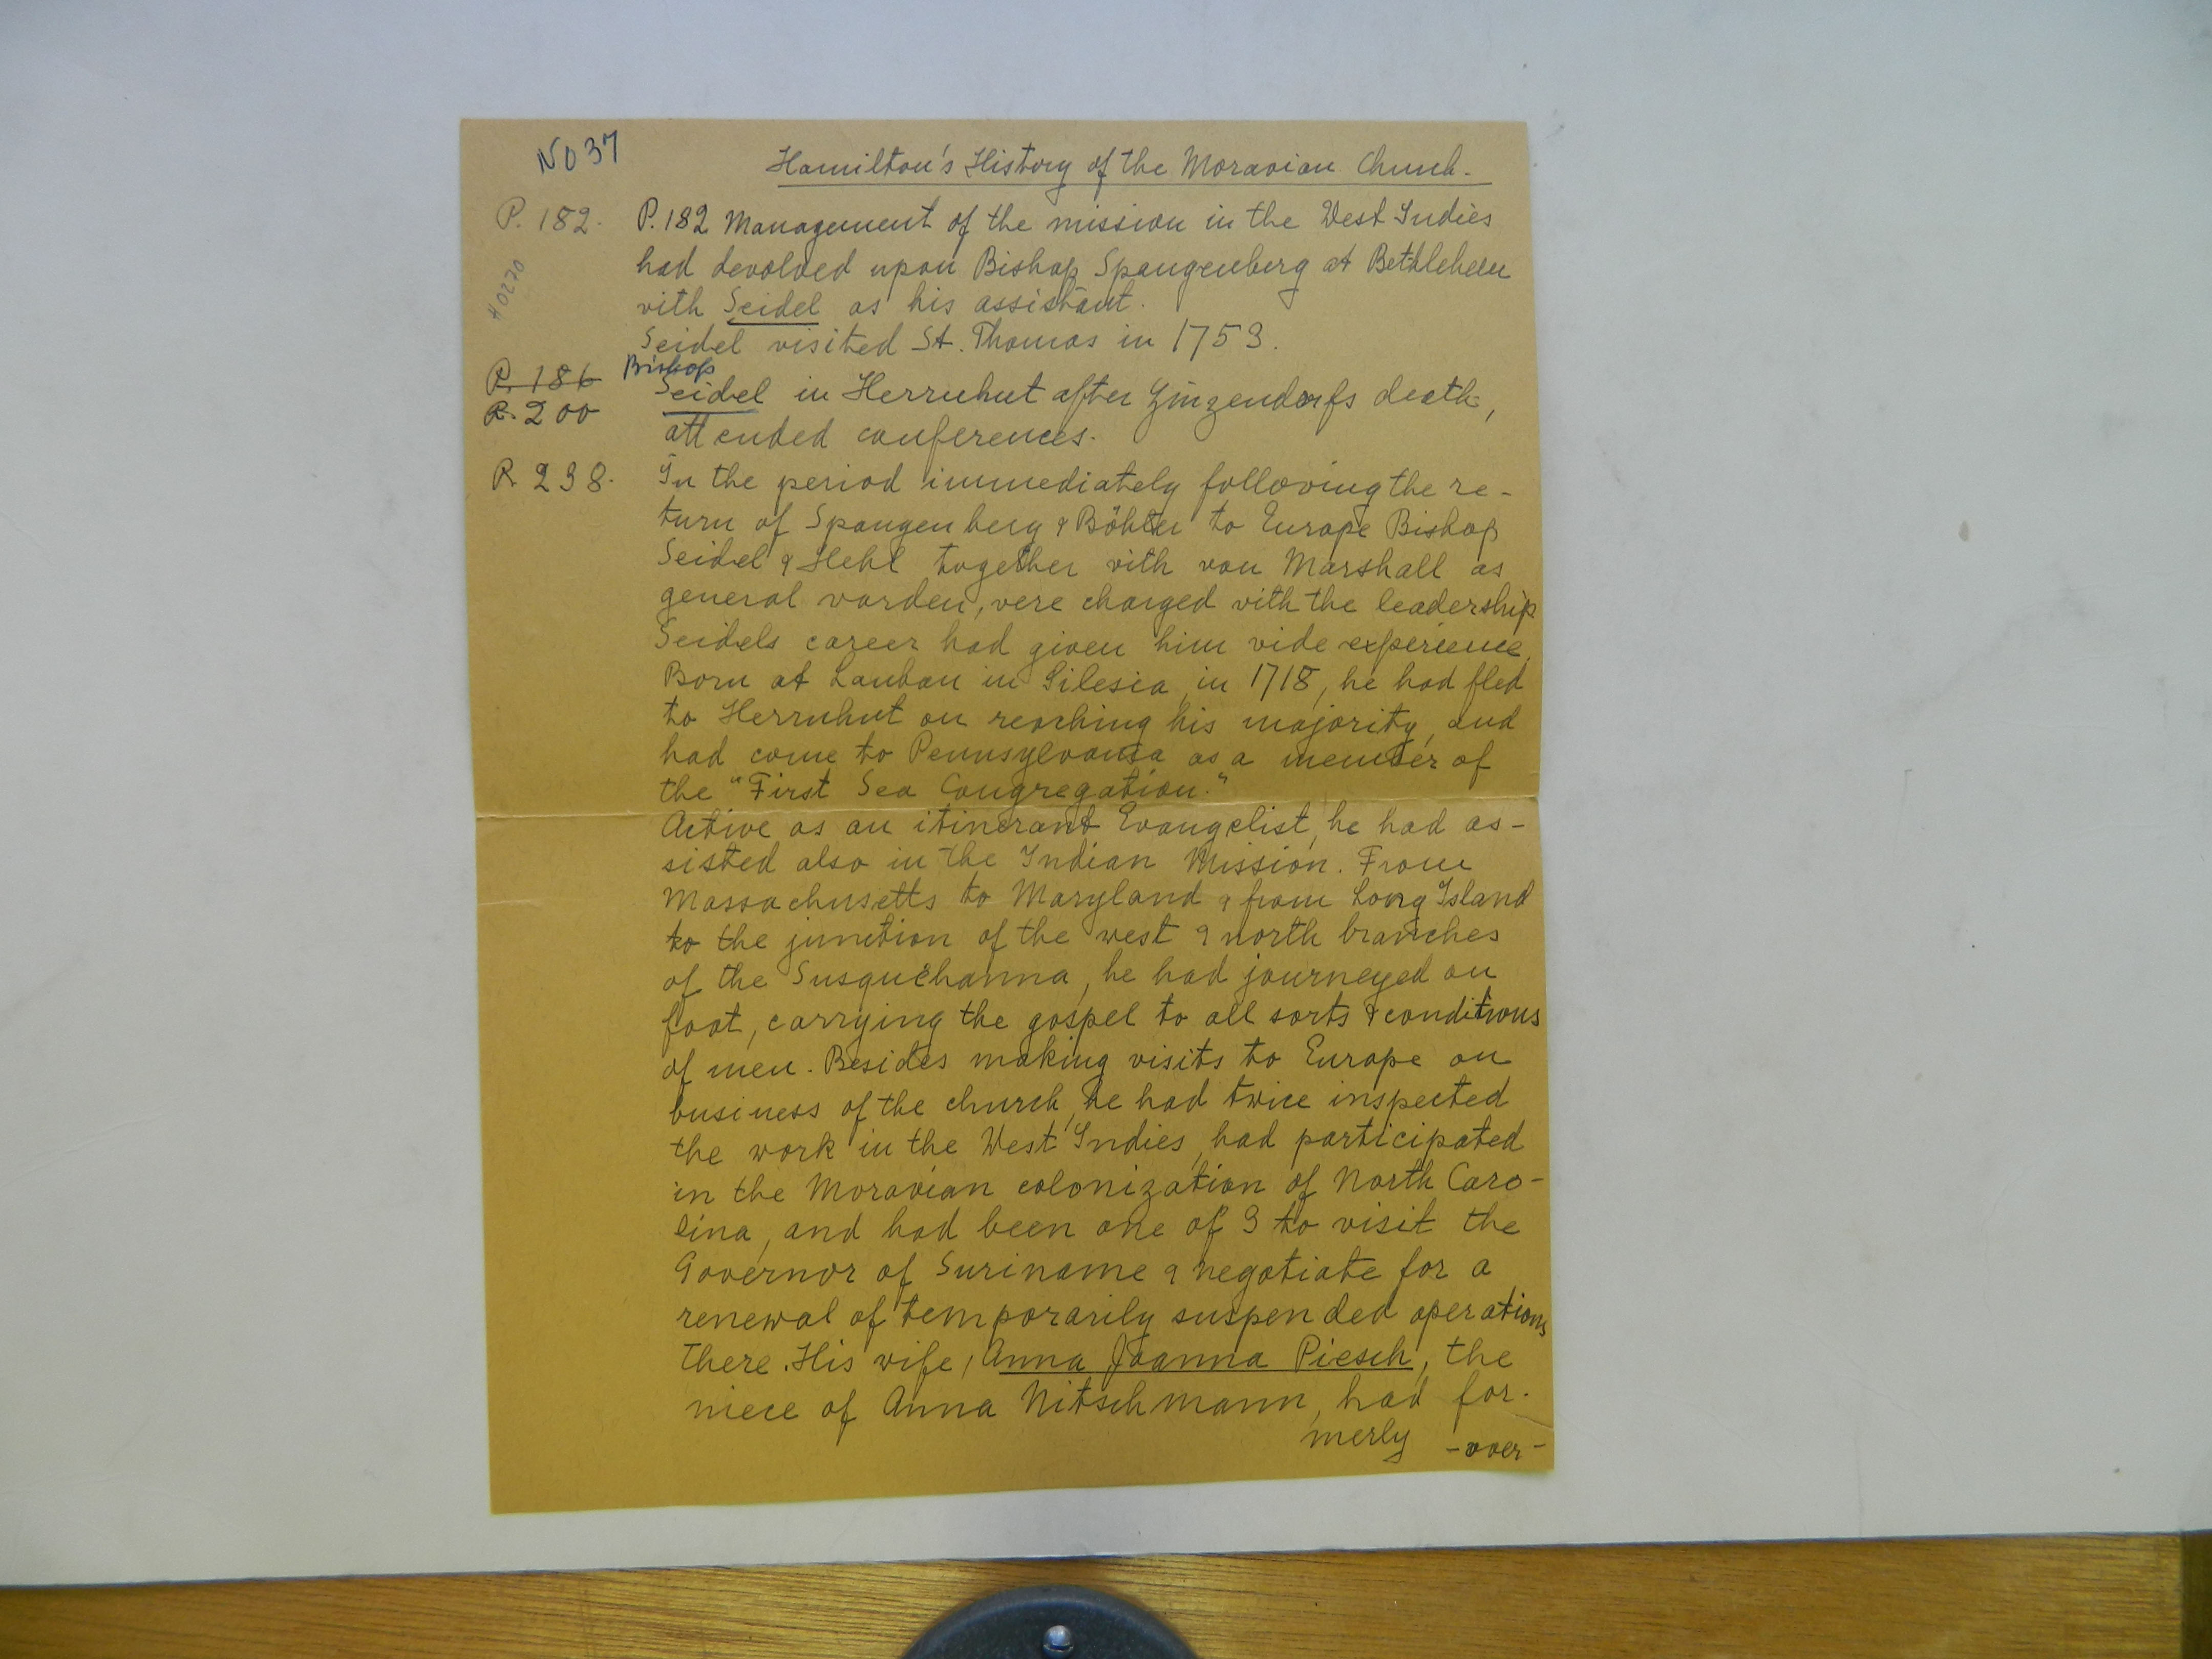 No 37
Hamilton's History of the Moravian Church.
P. 182. P. 182 Management of the mission in the West Indies
had devolved upon Bishop Spangenberg at Bethlehem
40270
vith Seidel as his assistant.
Seidel visited St. Thomas in 1753.
P. 186 Bishop
P. 200 Seidel in Herrnhut after Zinzendorfs death,
attended conferences.
P. 238. In the period immediately following the re-
turn of Spangenberg & Böhler to Europe Bishop
Seidel & Hehl together vith von Marshall as
general varden, vere charged vith the leadership
Seidels career had given him vide experience.
Born at Lauban in Silesia in 1718, he had fled
to Herrnhut on reaching his majority, and
had come to Pennsylvania as a member of
the "First Sea Congregation."
Active as an itinerant Evangelist, he had as-
sisted also in the Indian Mission. From
Massachusetts to Maryland & from Long Island
to the junction of the west & north branches
of the Susquehanna, he had journeyed on
foot, carrying the gospel to all sorts & conditions
of men. Besides making visits to Europe on
business of the church, he had twice inspected
the work in the West Indies, had participated
in the Moravian colonization of North Caro-
lina, and had been one of 3 to visit the
Governor of Suriname & negotiate for a
renewal of temporarily suspended operations
there. His wife, Anna Joanna Piesch, the
niece of Anna Nitschmann, had for-
merly -over-